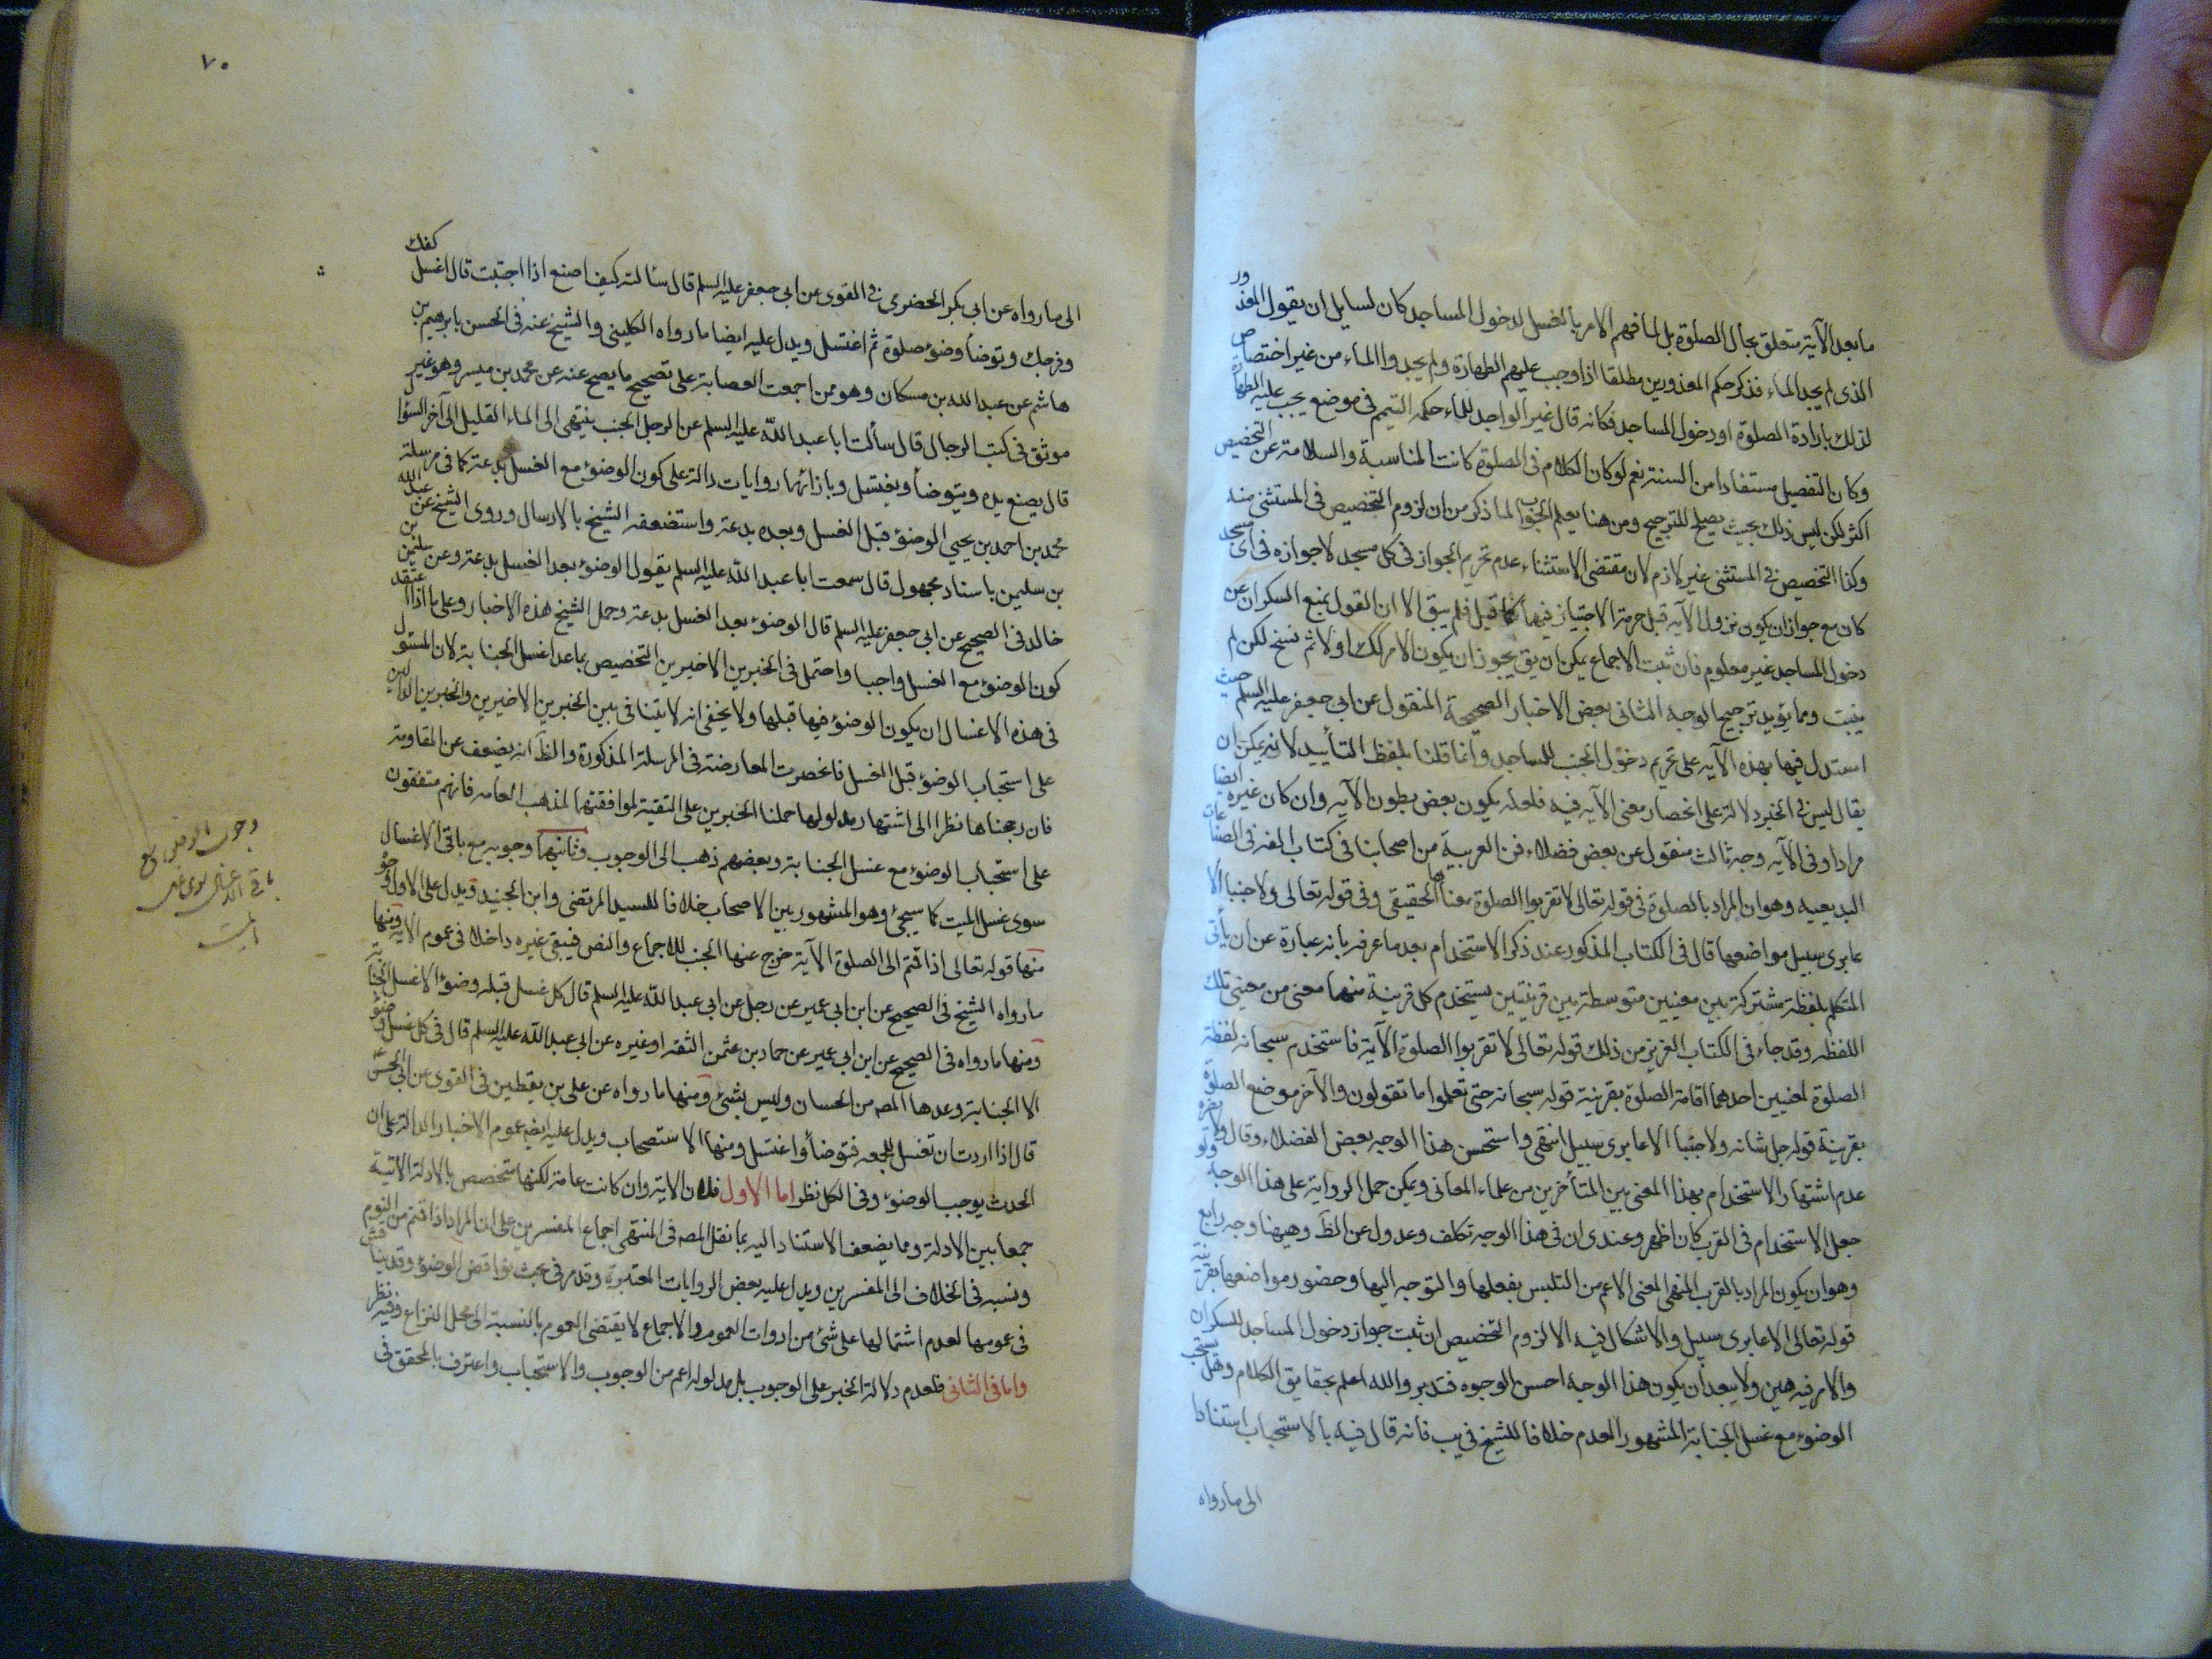 ما بعد الآية متعلق بحال الصلوة بل لما فهم الامر بالغسل لدخول المساجد كان لسايل ان يقول المعذور
الذى لم يجد الماء فذكر حكم المعذورين مطلقا اذا وجب عليهم الطهارة ولم يجدوا الماء من غير اختصاص
لذلك بارادة الصلوة او دخول المساجد فكانه قال غير الواجد للماء حكمه التيمم فى موضع يجب عليه الطهارة
وكان التفصيل مستفادا من السنة نعم لو كان الكلام فى الصلوة كانت المناسبة والسلامة عن التخصيص
اكثر لكن ليس ذلك بحيث يصلح للترجيح ومن هنا يعلم الجواب لما ذكر من ان لزوم التخصيص فى المستثنى منه
وكذا التخصيص فى المستثنى غير لازم لان مقتضى الاستثناء عدم تحريم الجواز فى كل مسجد لا جوازه فى اى مسجد
كان مع جواز ان يكون نزول الآية قبل حرمة الاجتياز فيهما كما قيل فلم يبق الا ان القول بمنع السكران عن
دخول المساجد غير معلوم فان ثبت الاجماع يمكن ان يق يجوز ان يكون الامر كك اولا ثم نسخ لكن لم
يثبت ومما يؤيد ترجيح الوجه الثانى بعض الاخبار الصحيحة المنقول عن ابى جعفر عليه السلم حيث
استدل فيها بهذه الآية على تحريم دخول الجنب للمساجد وانما قلنا بلفظ التأييد لانه يمكن ان
يقال ليس فى الخبر دلالة على انحصار معنى الآية فيه فلعله يكون بعض بطون الآية وان كان غيره ايضا
مرادا وفى الآية وجه ثالث منقول عن بعض فضلاء فن العربية من اصحابنا فى كتاب الفه فى الصناعات
البديعية وهو ان المراد بالصلوة فى قوله تعالى لا تقربوا الصلوة معناها الحقيقى وفى قوله تعالى ولا جنبا الا
عابرى سبيل مواضعها قال فى الكتاب المذكور عند ذكر الاستخدام بعد ما عرفه بانه عبارة عن ان يأتى
المتكلم بلفظة مشتركة بين معنيين متوسطة بين قرينتين يستخدم كل قرينة منهما معنى من معنيى تلك
اللفظة وقد جاء فى الكتاب العزيز من ذلك قوله تعالى لا تقربوا الصلوة الآية فاستخدم سبحانه لفظة
الصلوة لمعنيين احدهما اقامة الصلوة بقرينة قوله سبحانه حتى تعلموا ما تقولون والآخر موضع الصلوة
بقرينة قوله جل شانه ولا جنبا الا عابرى سبيل انتهى واستحسن هذا الوجه بعض الفضلاء وقال ولا يضره
عدم اشتهار الاستخدام بهذا المعنى بين المتأخرين من علماء المعانى ويمكن حمل الرواية على هذا الوجه ولو
جعل الاستخدام فى القرب كان اظهر وعندى ان فى هذا الوجه تكلف وعدول عن الظ وههنا وجه رابع
وهو ان يكون المراد بالقرب المنهى المعنى الاعم من التلبس بفعلها والتوجه اليها وحضور مواضعها بقرينة
قوله تعالى الا عابرى سبيل والاشكال فيه الا لزوم التخصيص ان ثبت جواز دخول المساجد للسكران
والامر فيه هين ولا يبعد ان يكون هذا الوجه احسن الوجوه فتدبر والله اعلم بحقايق الكلام وهل يستحب
الوضوء مع غسل الجنابة المشهور العدم خلافا للشيخ فى يب فانه قال فيه بالاستحباب استنادا
الى ما رواه
٧٠
الى ما رواه عن ابى بكر الحضرمى فى القوى عن ابى جعفر عليه السلم قال سألته كيف اصنع اذا اجنبت قال اغسل كفك
وفرجك وتوضأ وضوء صلوة ثم اغتسل ويدل عليه ايضا ما رواه الكلينى والشيخ عنه فى الحسن بابرهيم بن
هاشم عن عبد الله بن مسكان وهو ممن اجمعت العصابة على تصحيح ما يصح عنه عن محمد بن ميسر وهو غير
موثق فى كتب الرجال قال سألت ابا عبد الله عليه السلم عن الرجل الجنب ينتهى الى الماء القليل الى آخر السؤال
قال يصنع يده ويتوضأ ويغتسل وبازائها روايات دالة على كون الوضوء مع الغسل بدعة كما فى مرسلة
محمد بن احمد بن يحيى الوضوء قبل الغسل وبعده بدعة واستضعفه الشيخ بالارسال وروى الشيخ عن عبد الله
بن سليمن باسناد مجهول قال سمعت ابا عبد الله عليه السلم يقول الوضوء بعد الغسل بدعة وعن سليمن بن
خالد فى الصحيح عن ابى جعفر عليه السلم قال الوضوء بعد الغسل بدعة وحمل الشيخ هذه الاخبار وعلى ما اذا اعتقد
كون الوضوء مع الغسل واجبا واحتمل فى الخبرين الاخيرين التخصيص بما عدا غسل الجنابة لان المسنون
فى هذه الاغسال ان يكون الوضوء فيها قبلها ولا يخفى انه لا يتنافى بين الخبرين الاخيرين والخبرين الدالين
على استحباب الوضوء قبل الغسل فانحصرت المعارضة فى المرسلة المذكورة والظ انه يضعف عن المقاومة
فان رجحناها نظرا الى اشتهار مدلولها حملنا الخبرين على التقية لموافقتهما لمذهب العامه فانهم متفقون
على استحباب الوضوء مع غسل الجنابة وبعضهم ذهب الى الوجوب وثانيهما وجوبه مع باقى الاغسال
سوى غسل الميت كما سيجئ وهو المشهور بين الاصحاب خلافا للسيد المرتضى وابن الجنيد ويدل على الاول وجوه
منها قوله تعالى اذا قمتم الى الصلوة الآية خرج عنها الجنب للاجماع والنص فيبقى غيره داخلا فى عموم الآيه ومنها
ما رواه الشيخ فى الصحيح عن ابن ابى عمير عن رجل عن ابى عبد الله عليه السلم قال كل غسل قبله وضوء الا غسل الجنابة
ومنها ما رواه فى الصحيح عن ابن ابى عمير عن حماد بن عثمن الثقه او غيره عن ابى عبد الله عليه السلم قال فى كل غسل وضوء
الا الجنابة وعدها المصه من الحسان وليس بشئ ومنها ما رواه عن على بن يقطين فى القوى عن ابى الحسن
قال اذا اردت ان تغتسل للجمعه فتوضأ واغتسل ومنها الاستصحاب ويدل عليه ايضا عموم الاخبار الدالة على ان
الحدث يوجب الوضوء وفى الكل نظر اما الاول فلان الاية وان كانت عامة لكنها تتخصص بالادلة الاتية
جمعا بين الادلة ومما يضعف الاستناد اليه بما نقل المصه فى المنتهى اجماع المفسرين على ان المراد اذا قمتم من النوم
ونسبه فى الخلاف الى المفسرين ويدل عليه بعض الروايات المعتبرة وقد مر فى بحث نواقض الوضوء وقد يناقش
فى عمومها لعدم اشتمالها على شئ من ادوات العموم والاجماع لا يقتضى العموم بالنسبة الى محل النزاع وفيه نظر
واما فى الثانى فلعدم دلالة الخبر على الوجوب بل مدلوله اعم من الوجوب والاستحباب واعترف بالمحقق فى
وجوب الوضوء مع
باقى الاغسال سوى غسل
الميت